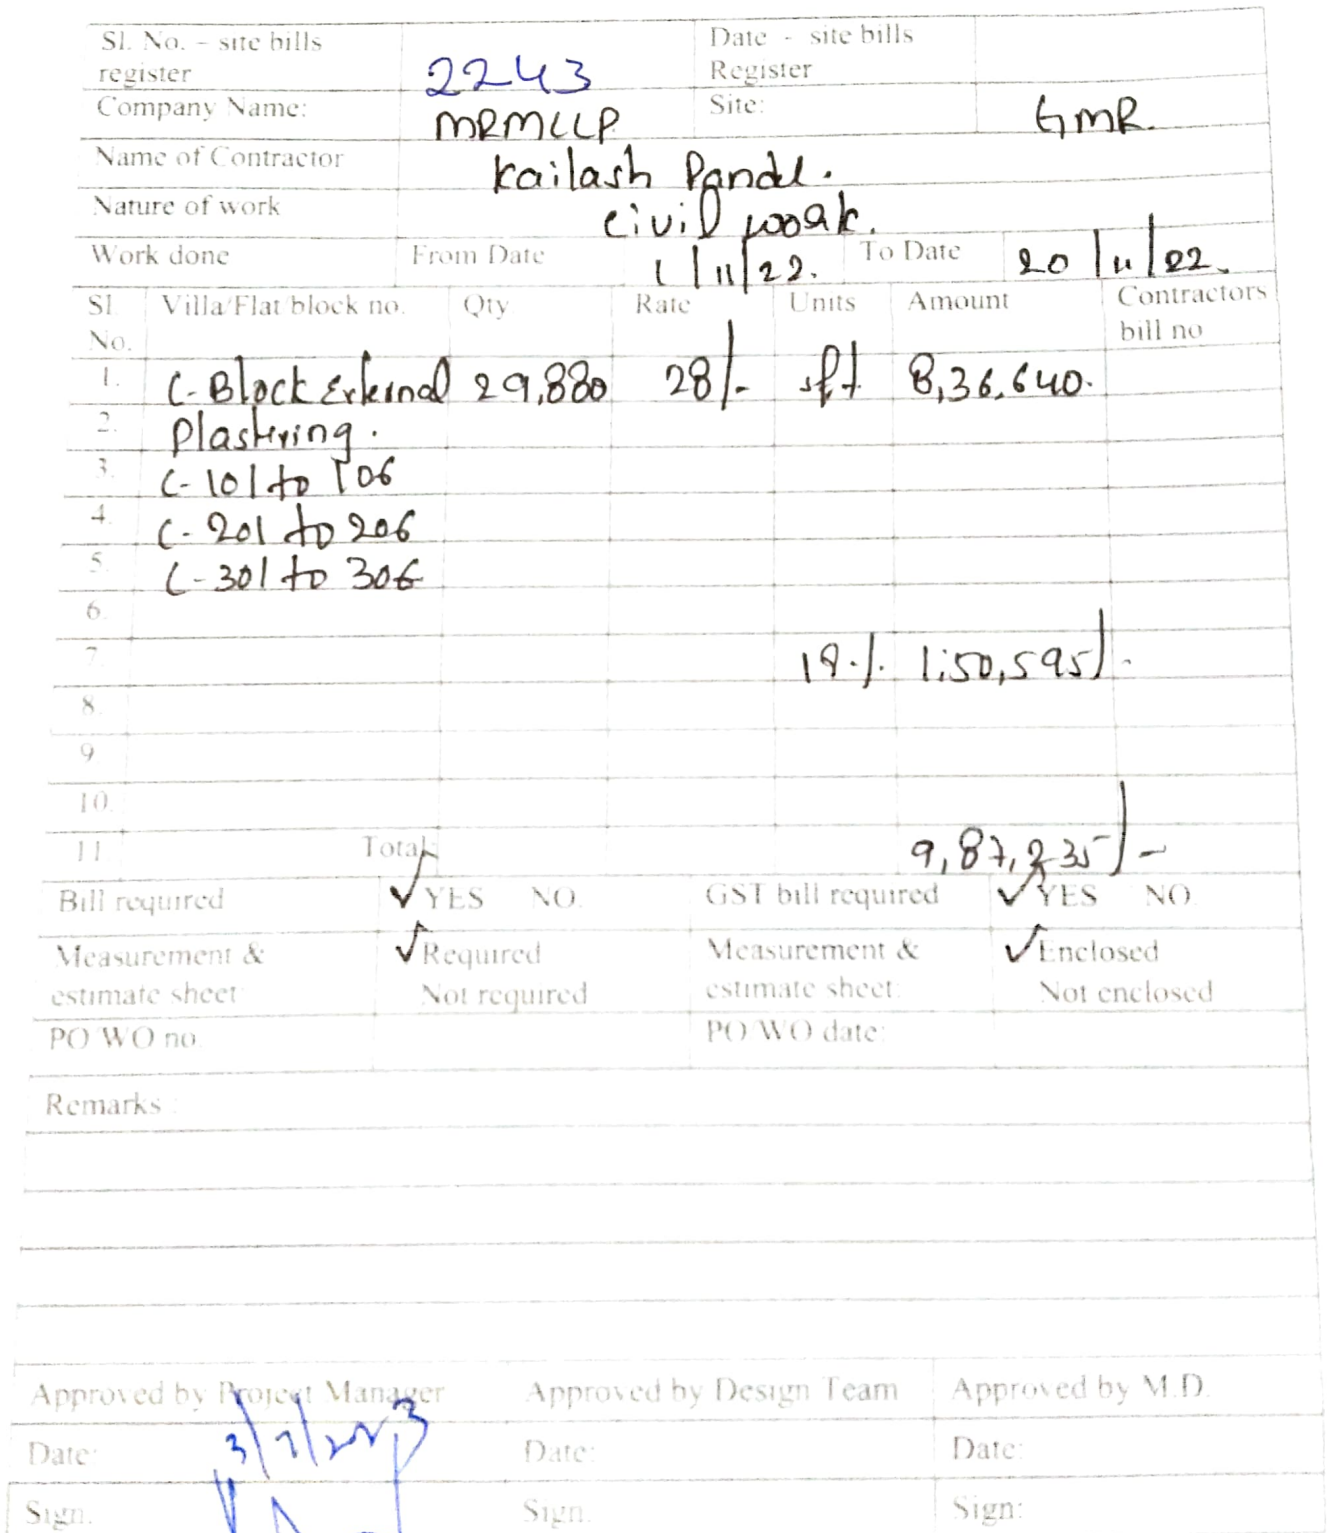 Sl. No. – site bills register 2243 Date - site bills Register
Company Name: MRMLLP Site: GMR.
Name of Contractor Kailash Pande.
Nature of work Civil work.
Work done From Date 1/11/22. To Date 20/11/22.
Sl. No. Villa/Flat/block no. Qty Rate Units Amount Contractors bill no
1. C-Block External 29,880 28/- sft 8,36,640.
2. Plastering.
3. C-101 to 106
4. C-201 to 206
5. C-301 to 306
6.
7. 18% 1,50,595/-
8.
9
10.
11 Total: 9,87,235/-
Bill required ✓YES NO. GST bill required ✓YES NO.
Measurement & estimate sheet: ✓Required Not required Measurement & estimate sheet: ✓Enclosed Not enclosed
PO/WO no. PO/WO date:
Remarks :
Approved by Project Manager Approved by Design Team Approved by M.D.
Date: Date: Date:
Sign. Sign. Sign: